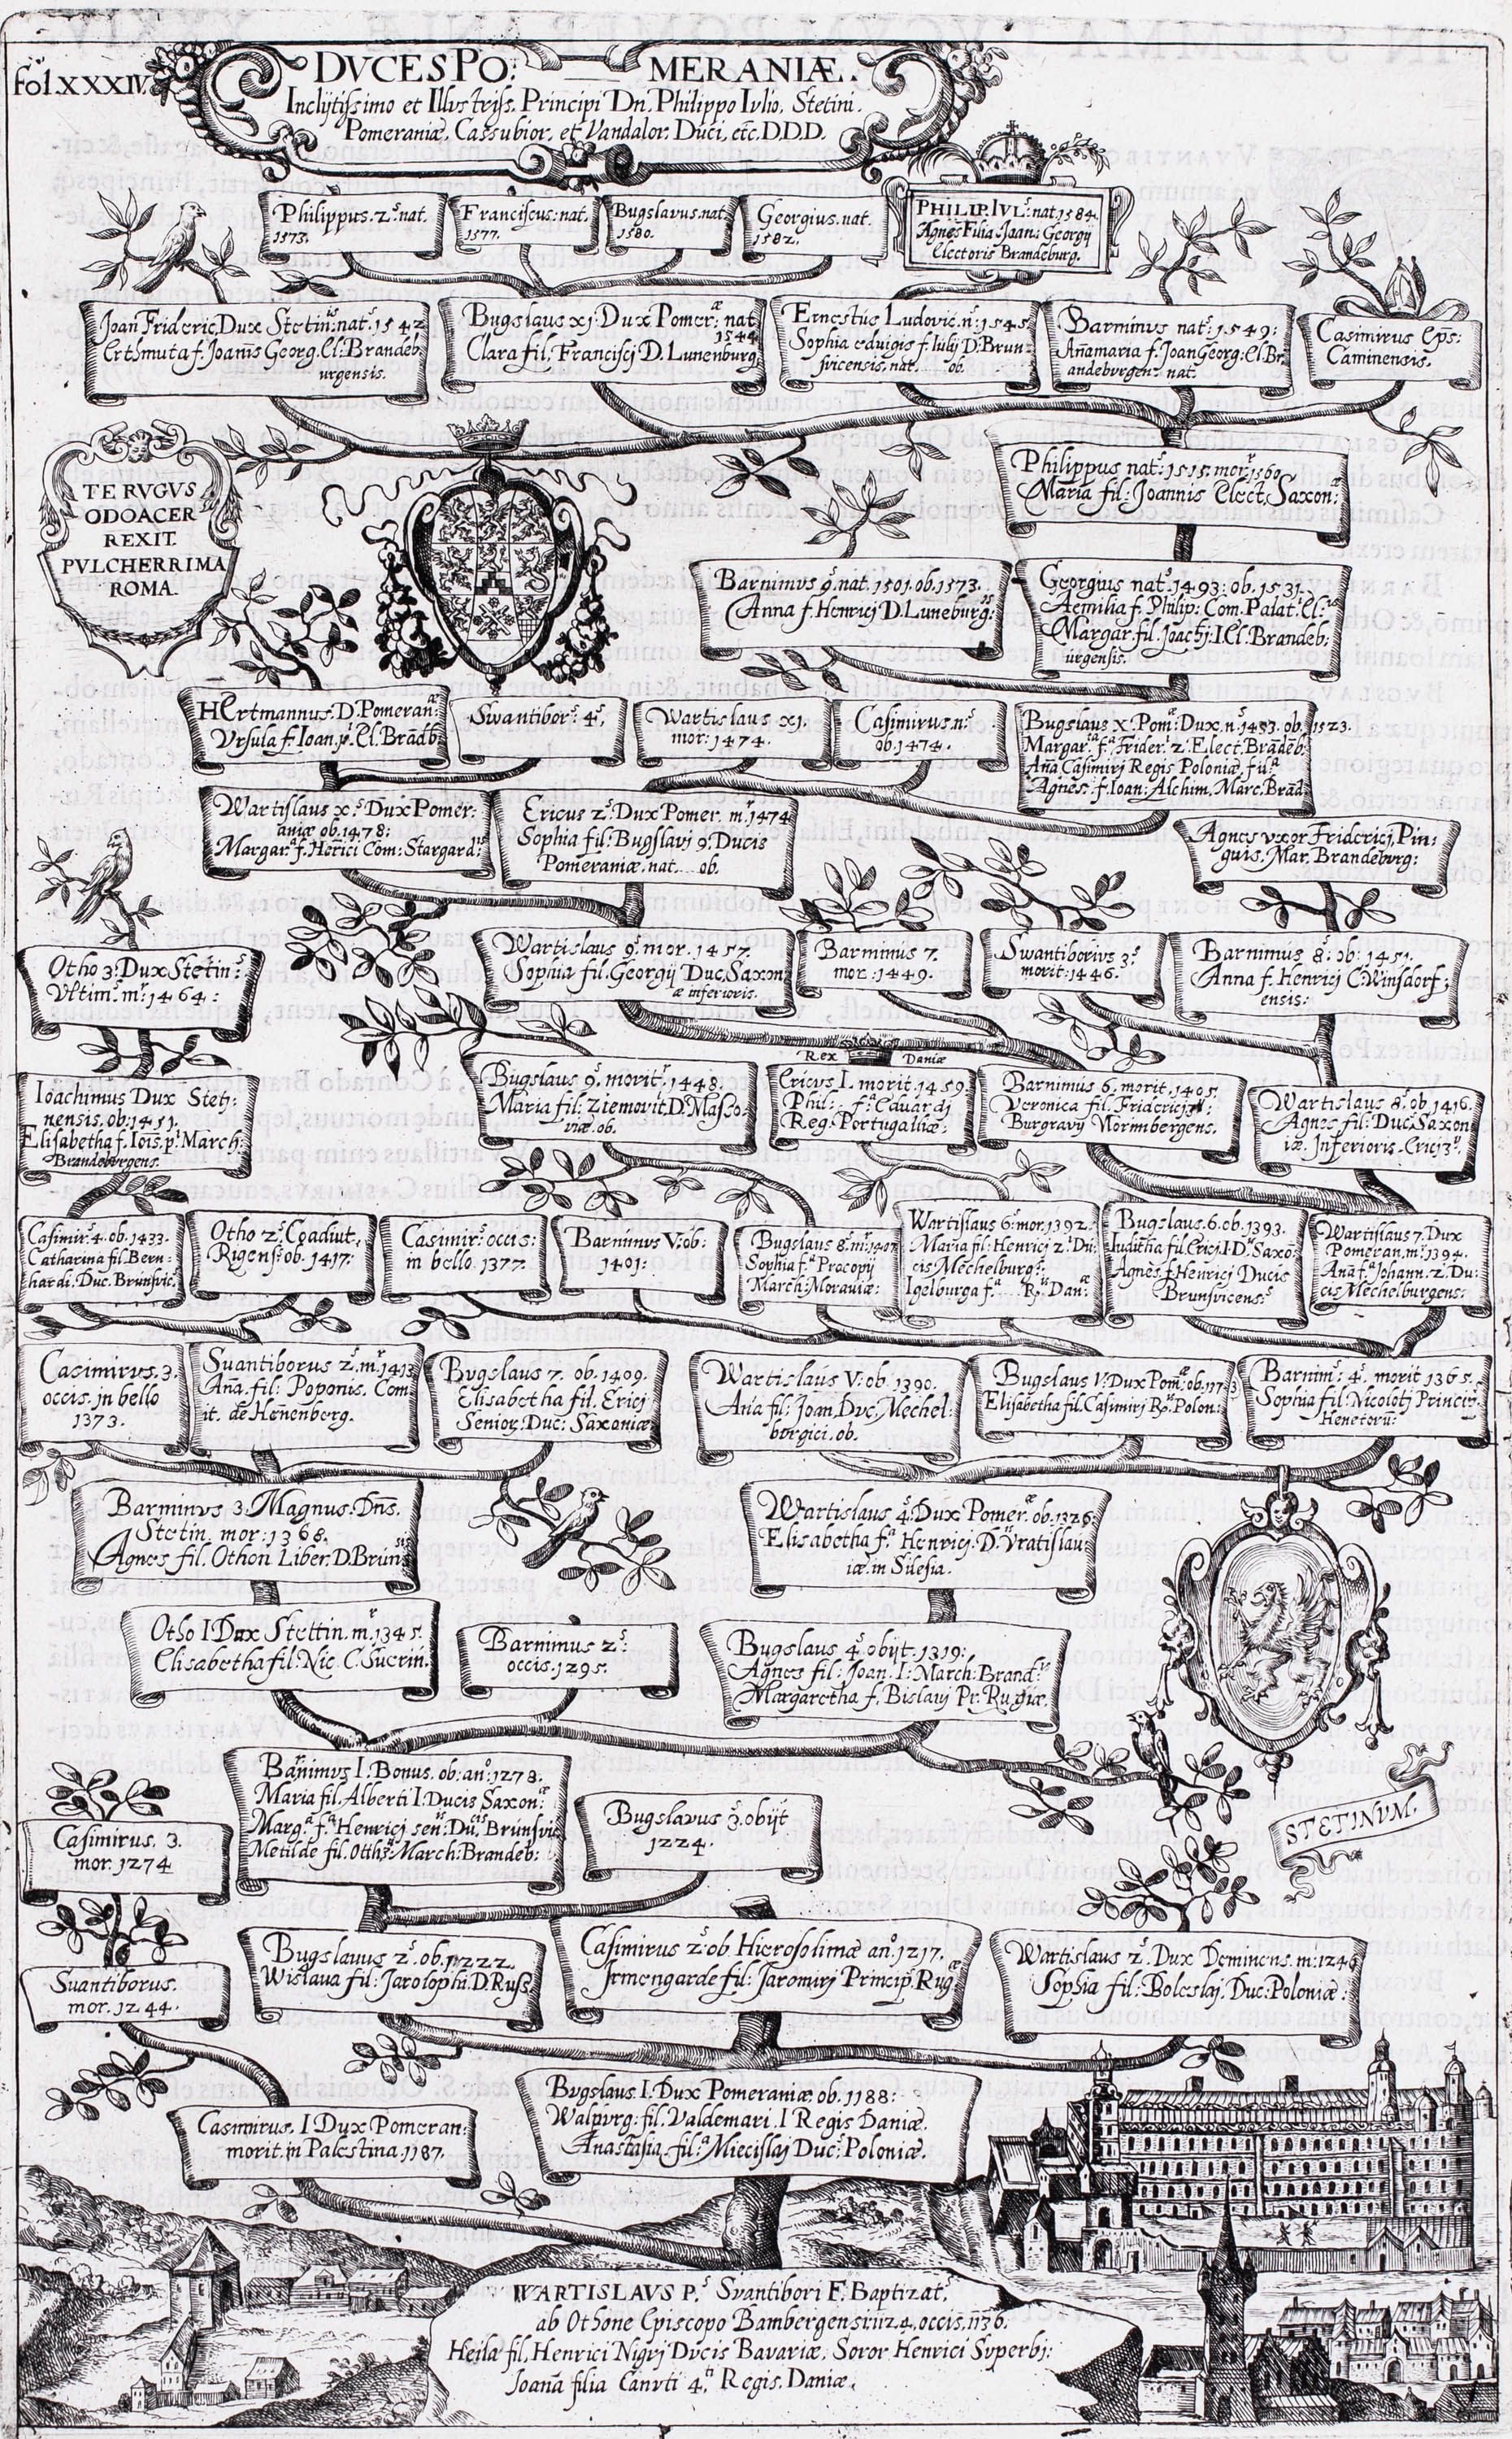 Fol. XXXIV.
DVCES PO: MERANIÆ.
Inclÿtissimo et Illvstriss. Principi Dn. Philippo Ivlio, Stetini.
Pomeraniæ, Cassubior. et Vandalor: Duci, etc. D.D.D.
Philippus. 2.ˢ nat.
1573.
Franciscus: nat.
1577.
Bugslavus. nat.
1580.
Georgius. nat.
1582.
PHILIP. IVL.ˢ nat. 1584.
Agnes Filia Joan: Georgij
Electoris Brandeburg.
Joan Frideric, Dux Stetin: nat. 1542
Erthmuta f. Joanis Georg. El: Brandeb
urgensis.
Bugslaus XI. Dux Pomer: nat
1544
Clara fil. Francisci D. Lunenburg
Ernestus Ludovic. n: 1545
Sophia eduigis f. Iulij D. Brun
svicensis, nat. ob.
Barminvs natˢ: 1549:
Anamaria f. Joan Georg: El: Br.
andeburgen: nat.
Casimirvs Eps:
Caminensis.
TE RVGVS
ODOACER
REXIT.
PVLCHERRIMA
ROMA.
Philippus natˢ: 1515. mor: 1560
Maria fil: Joannis Elect. Saxon:
Barnimvs 9. nat. 1501. ob. 1573.
Anna f. Henrici D. Luneburg:
Georgius natˢ. 1493: ob. 1531.
Aemilia f. Philip: Com. Palat. El:
Margar. fil. Joachi: I. El. Brandeb:
urgensis.
HErtmannus. D. Pomeran:
Vrsula f. Ioan. p. El. Bradb
Swantiborˢ. 4ˢ.
Wartislaus XI.
mor: 1474.
Casimirus. nˢ.
ob. 1474.
Bugslaus X Pom: Dux. nˢ. 1453. ob. 1523.
Margar. f. Frider. 2. Elect. Bradeb:
Aña Casimiri Regis Poloniæ fil.ᵃ
Agnes: f. Ioan: Alchim, Marc. Brad
Wartislaus X.ˢ Dux Pomer:
aniæ ob. 1478:
Margar. f. Herici Com: Stargard
Ericus 2.ˢ Dux Pomer. m. 1474
Sophia fil: Bugslavj 9. Ducis
Pomeraniæ. nat. ob.
Agnes vxor Friderici, Pin:
guis. Mar. Brandeburg:
Otho 3. Dux Stetinˢ.
Vltim.ˢ m. 1464:
Wartislaus 9.ˢ mor. 1457.
Sophia fil. Georgij Duc. Saxon
æ inferioris.
Barnimus 7.
mor: 1449.
Swantiborivs 3.ˢ
morit: 1446.
Barnimus. 8: ob: 1451.
Anna f. Henrici C. Winsdorf:
ensis:
Ioachimus Dux Steti:
nensis. ob. 1451.
Elisabetha f. Iois. p. March:
Brandeburgens.
Bugslaus 9. morit. 1448.
Maria fil: Ziemovit. D. Maso:
viæ. ob.
Rex Daniæ
Ericus I. morit. 1459.
Phil: fᵃ: Eduardi
Reg. Portugalliæ:
Barnimus 6. morit. 1405.
Veronica fil. Friderici
Burgravij Normbergens.
Wartislaus 8. ob. 1416.
Agnes fil: Duc Saxon
iæ. Inferioris. Erici 3
Casimir. 4. ob. 1433.
Catharina fil. Bern:
hardi. Duc. Brunsvic.
Otho 2.ˢ Coadiut.
Rigensˢ. ob. 1417.
Casimirˢ. occis:
in bello. 1377.
Barnimvs V: ob:
1401.
Bugslaus 8. m. 1417
Sophia fᵃ Procopij
March: Moraviæ:
Wartislaus 6. mor. 1392.
Maria fil: Henrici 2. Du:
cis Mechelburg:
Igelburga fᵃ. Rp. Dan:
Bugslaus. 6. ob. 1393.
Iuditha fil. Erici I. D. Saxo
Agnes f. Henrici Ducis
Brunsvicens:
Wartislaus 7. Dux
Pomeran. m. 1394.
Ana fᵃ Johann. 2. Du:
cis Mechelburgens:
Casimirvs. 3.
occis. in bello
1373.
Suantiborus 2. m. 1413
Aña. fil: Poponis. Com
it. de Henenberg.
Bugslaus 7. ob. 1409.
Elisabetha fil. Erici
Senior. Duc: Saxoniæ
Wartislaus V: ob. 1390.
Ana fil: Joan. Duc. Mechel:
burgici. ob.
Bugslaus V. Dux Pom: ob. 1173
Elisabetha fil. Casimiri Rp. Polon:
Barnimˢ: 4. morit 1365.
Sophia fil: Nicoloti Princip
Henetorū:
Barminvs 3. Magnus. Dñs.
Stetin. mor: 1368.
Agnes fil. Othon Liber. D. Brun
Wartislaus 4.ˢ Dux Pomer. ob. 1326
Elisabetha fᵃ. Henrici D. Vratislav
iæ. in Silesia.
Otho I Dux Stettin. m. 1345.
Elisabetha fil: Nic. C. Suerin.
Barnimus 2.ˢ:
occis. 1295.
Bugslaus 4.ˢ obijt. 1319:
Agnes fil: Joan. I: March: Brand:
Margaretha f. Bislavi Pr. Rugiæ.
STETINVM.
Casimirus. 3.
mor. 1274
Barnimus I. Bonus. ob: anº: 1278.
Maria fil. Alberti I. Ducis Saxon:
Marg.ᵃ fᵃ Henrici sen: Du. Brunsvic
Metilde fil. Othis March: Brandeb:
Bugslavus 3. obijt
1224.
Suantiborus.
mor. 1244.
Bugslavus 2.ˢ ob. 1222.
Wislava fil: Jarolophi. D. Russ
Casimirus 2.ˢ ob Hierosolimæ anº. 1217.
Irmengarde fil: Jaromirj Princip. Rug
Wartislaus 2.ˢ Dux Deminens. m: 1246
Sophia fil: Boleslaj. Duc: Poloniæ:
Casimirus. I Dux Pomeran:
morit. in Palestina. 1187.
Bvgslavs I. Dux Pomeraniæ. ob. 1188:
Walpurg: fil. Valdemari. I Regis Daniæ.
Anastasia. filᵃ: Miecislaj Duc: Poloniæ.
WARTISLAVS P.ˢ Svantibori F. Baptizat.ˢ
ab Othone Episcopo Bambergensi. 1124, occis. 1136.
Heila fil. Henrici Nigrj Dvcis Bavariæ, Soror Henrici Svperbi:
Joanā filia Canvti 4. Regis. Daniæ.